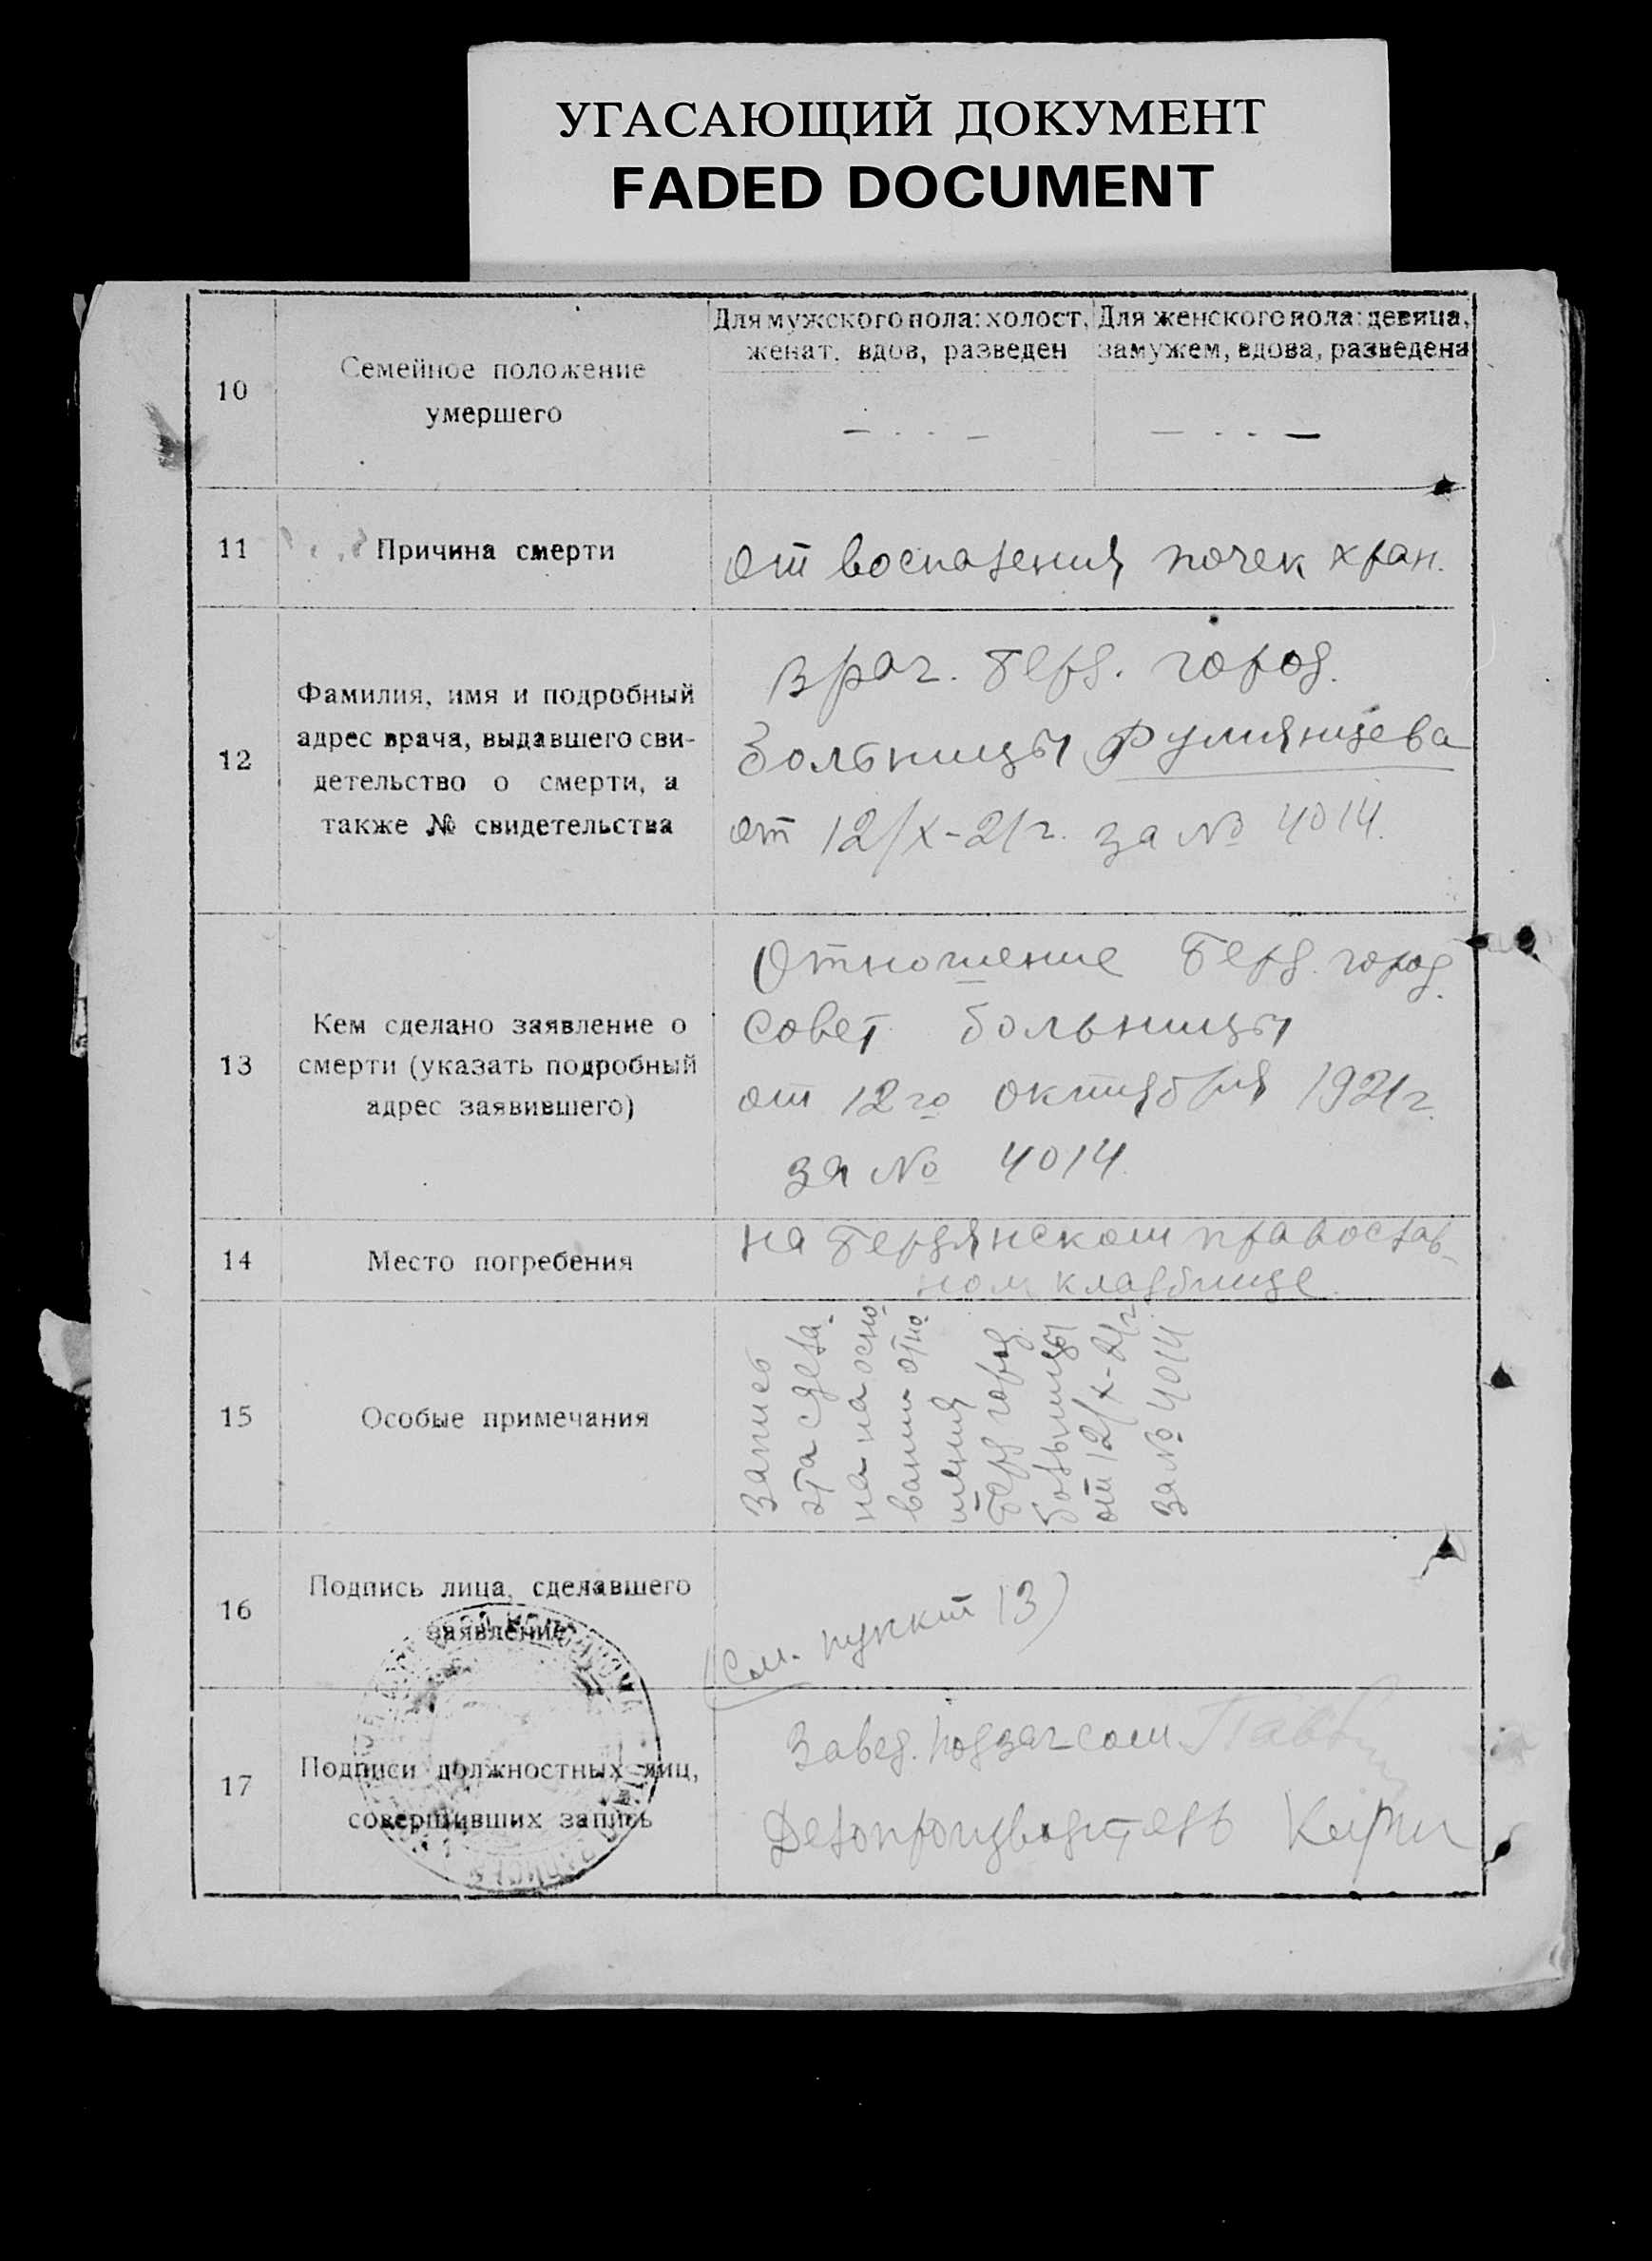 УГАСАЮЩИЙ ДОКУМЕНТ
FADED DOCUMENT
10
Семейное положение
умершего
Для мужского пола: холост,
женат, вдов, разведен
Для женского пола: девица,
замужем, вдова, разведена
— · · –
— · · —
11
Причина смерти
от воспаления почек хран.
12
Фамилия, имя и подробный
адрес врача, выдавшего сви-
детельство о смерти, а
также № свидетельства
врач. Берд. город.
Больницы Румянцева
от 12/X-21г. за № 4014.
13
Кем сделано заявление о
смерти (указать подробный
адрес заявившего)
Отношение Берд. город.
Совет. больницы
от 12го октября 1921г.
за № 4014.
14
Место погребения
на Бердянском православ-
ном кладбище.
15
Особые примечания
Запись
эта сдела-
на на осно-
вании отно
шения
Берд город.
больницы
от 12/X-21г.
за № 4014
16
Подпись лица, сделавшего
заявление
(См. пункт 13)
17
Подписи должностных лиц,
совершивших запись
Завед. подзагсом
Делопроизводитель